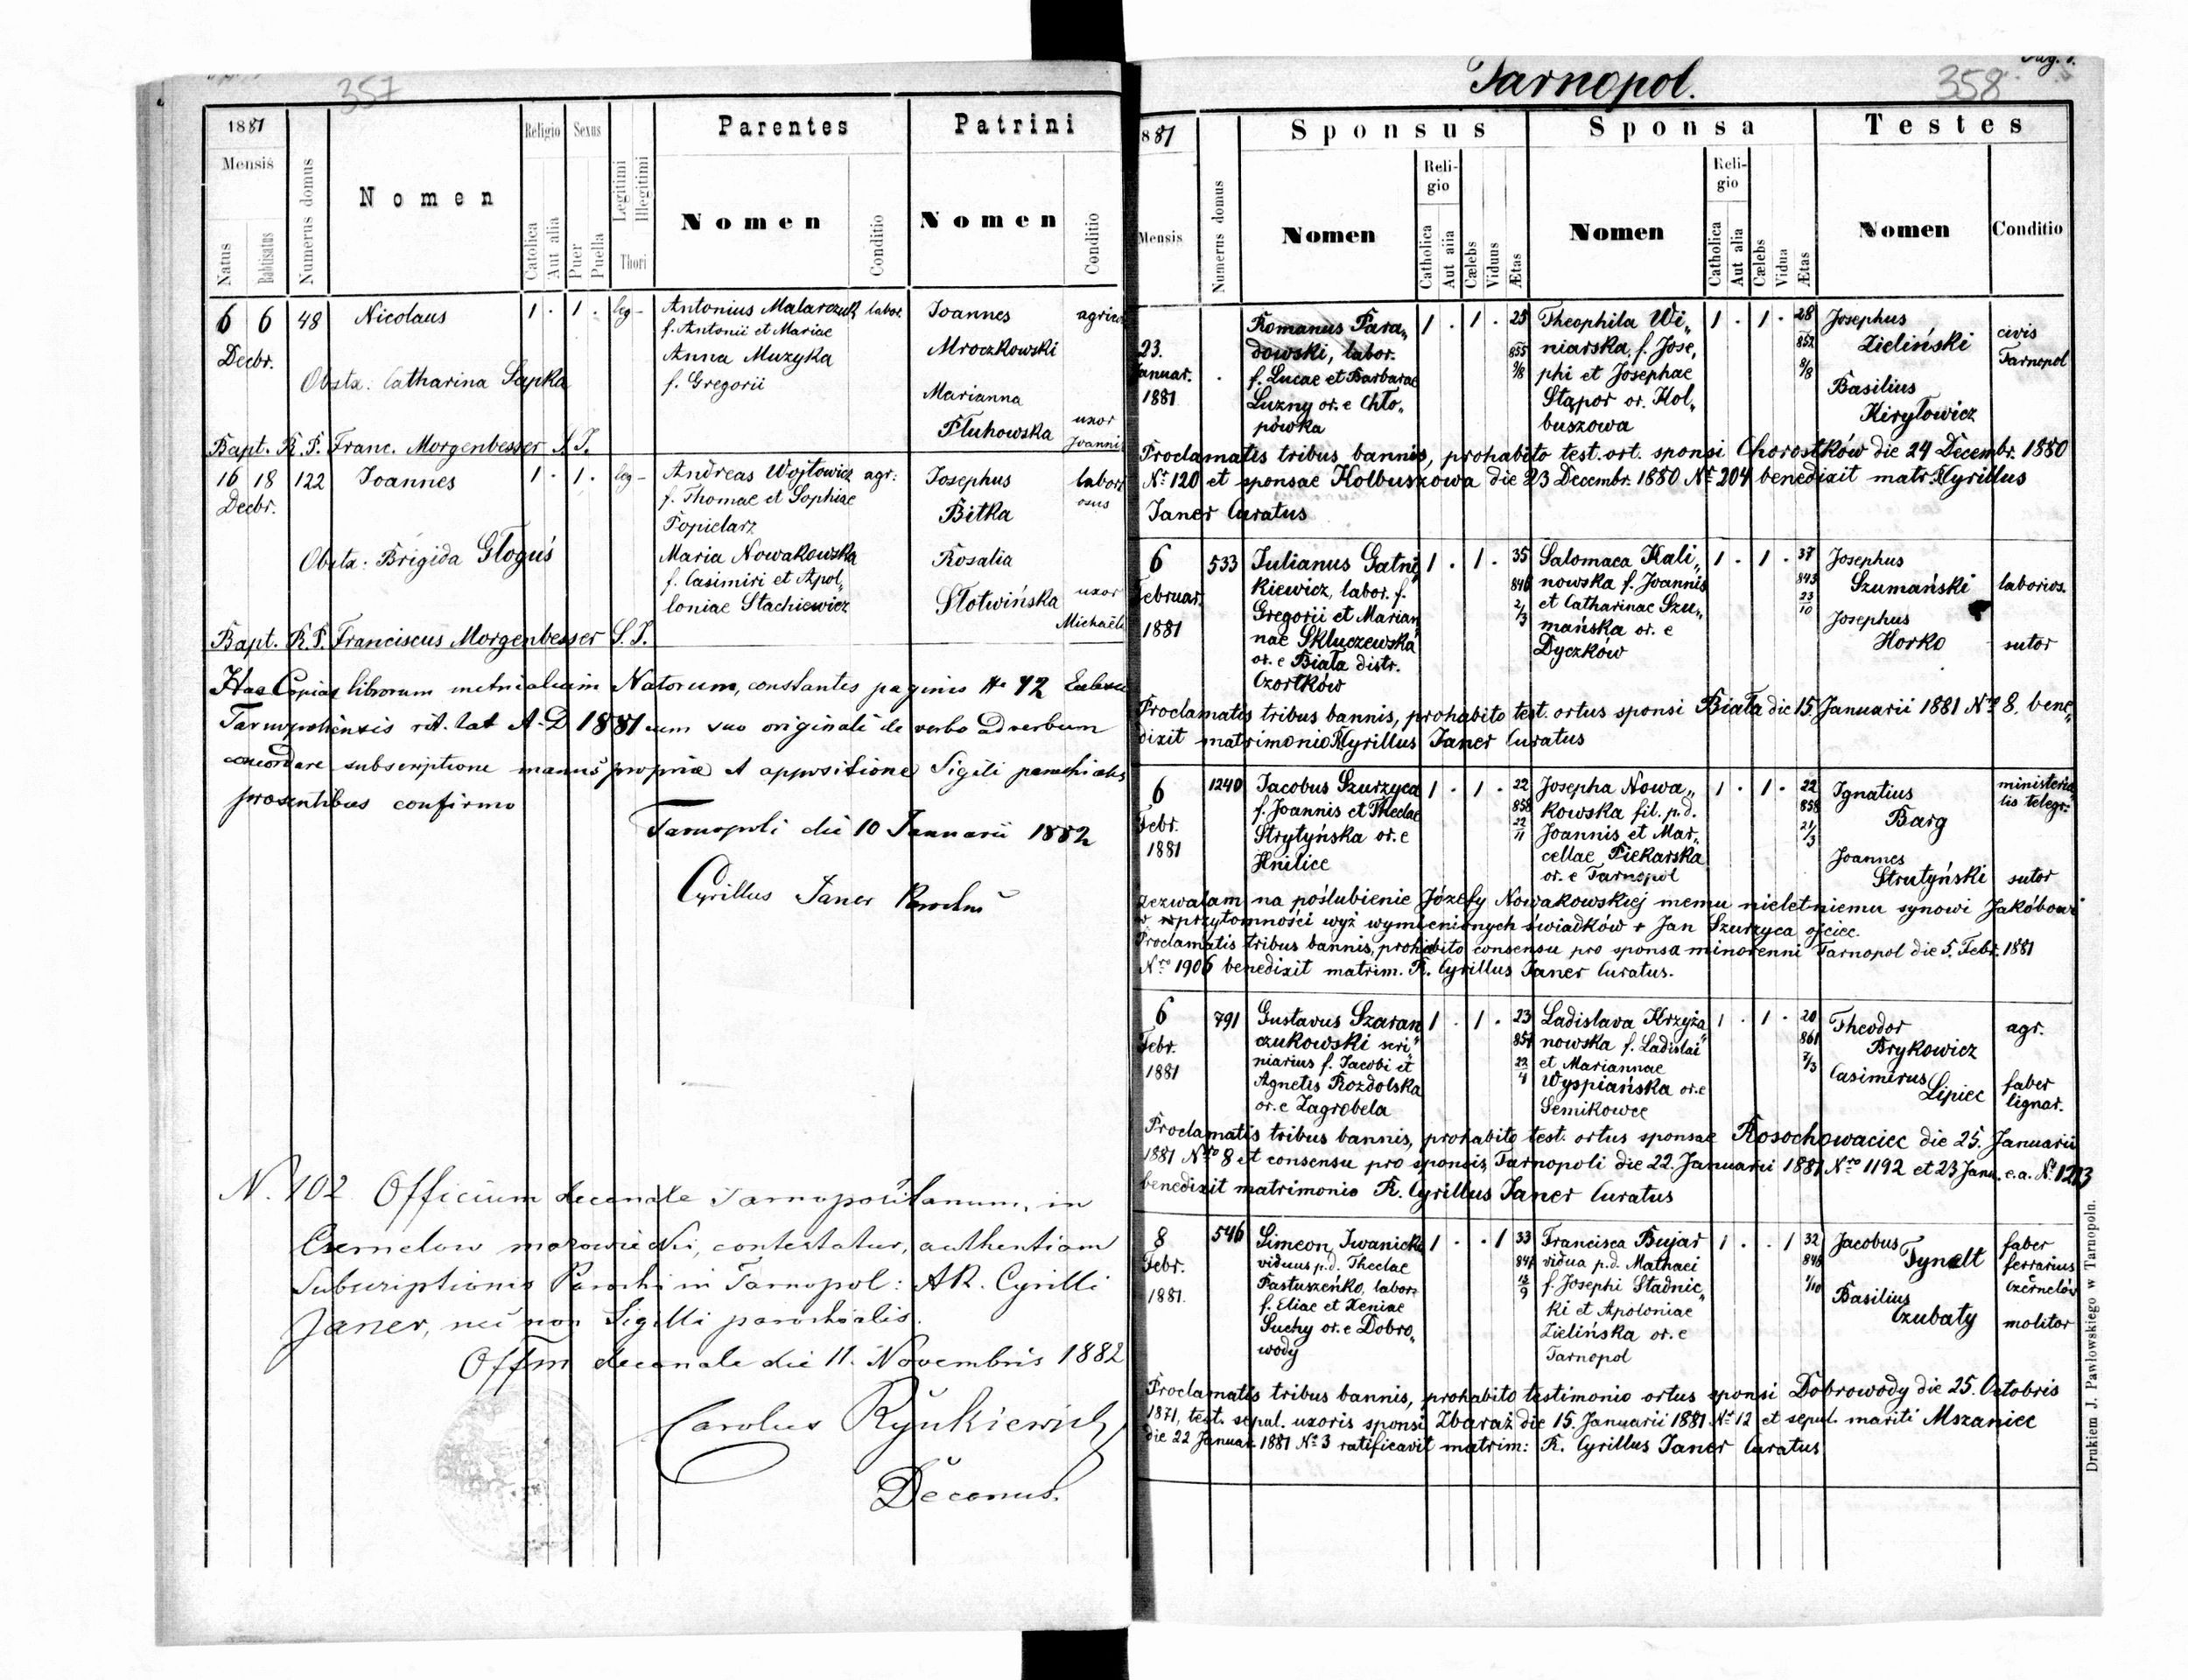 357
1881
Mensis
Natus
Babtisatus
Numerus domus
Nomen
Religio
Catolica
Aut alia
Sexus
Puer
Puella
Legitimi
Illegitimi
Thori
Parentes
Nomen
Conditio
Patrini
Nomen
Conditio
6 6 48 Nicolaus 1 . 1 . leg- Antonius Malarczuk labor. Joannes
f. Antonii et Mariae
Decbr. Anna Muzyka Mroczkowski
Obstx. Catharina Sapka f. Gregorii
Marianna
Pluhowska uxor
Bapt. R. P. Franc. Morgenbesser S. J. Joannis
16 18 122 Joannes 1 . 1 . leg- Andreas Wojtowicz agr: Josephus
Decbr. f. Thomae et Sophiae Bitka
Popielarz
Obstx: Brigida Głoguś Maria Nowakowska Rosalia
f. Casimiri et Apol„
loniae Stachiewicz Słotwińska uxor
Bapt. R. P. Franciscus Morgenbesser S. J.
Has Copias librorum metricalium Natorum, constantes paginis 72
Tarnopoliensis rit. lat A. D 1881 cum suo originali de verbo ad verbum
concordare subscriptione manus propriae et appositione Sigili parochialis
presentibus confirmo
Tarnopoli die 10 Januarii 1882
Cyrillus Janer Parochus
N. 102 Officium decanale Tarnopolitanum, in
Czernelow mazowiecki, contestatur, authentiam
Subscriptionis Parochi in Tarnopol: AR. Cyrilli
Janer, nec non Sigilli parochialis.
Offm decanale die 11. Novembris 1882
Carolus
Decanus.
Tarnopol.
358
Pag. 1.
1881
Mensis
Numerus domus
Sponsus
Nomen
Religio
Catholica
Aut alia
Cælebs
Viduus
Ætas
Sponsa
Nomen
Religio
Catholica
Aut alia
Cælebs
Vidua
Ætas
Testes
Nomen
Conditio
23. Romanus Para„ 1 . 1 . 25 Theophila Wi„ 1 . 1 . 28 Josephus
Januar. dowski, labor. 855 niarska, f. Jose„ 852 Zieliński civis
1881 f. Lucae et Barbarae 9/8 phi et Josephae 8/8 Tarnopol
Luzny or. e Chło„ Stąpor or. Kol„ Basilius
pówka buszowa Kiryłowicz
Proclamatis tribus bannis, prohabito test. ort. sponsi Chorostków die 24 Decembr. 1880
Nr 120 et sponsae Kolbuszowa die 23 Decembr. 1880 Nr 204 benedixit matr. R. Cyrillus
Janer Curatus
6 533 Julianus Gatni„ 1 . 1 . 35 Salomaea Kali„ 1 . 1 . 37 Josephus
Februar. kiewicz, labor. f. 846 nowska f. Joannis 843 Szumański laborios.
1881 Gregorii et Marian„ 2/3 et Catharinae Szu„ 23/10
nae Skluczewska mańska or. e Josephus
or. e Biała distr. Dyczków Horko sutor
Czortków
Proclamatis tribus bannis, prohabito test. ortus sponsi Biała die 15 Januarii 1881 Nro 8. bene„
dixit matrimonio R. Cyrillus Janer Curatus
6 1240 Jacobus Szurzyca 1 . 1 . 22 Josepha Nowa„ 1 . 1 . 22 Ignatius ministeria„
Febr. f. Joannis et Theclae 858 kowska fil. p.d. 858 Barg lis telegr.
1881 Strytyńska or. e 22/11 Joannis et Mar„ 21/3
Hnilice cellae Piekarska Joannes
or. e Tarnopol Strutyński sutor
Zezwalam na poślubienie Józefy Nowakowskiej memu nieletniemu synowi Jakóbowi
w przytomności wyż wymienionych świadków + Jan Szurzyca ojciec.
Proclamatis tribus bannis, prohabito consensu pro sponsa minorenni Tarnopol die 5. Febr. 1881
Nro 1906 benedixit matrim. R. Cyrillus Janer Curatus.
6 791 Gustavus Szaran„ 1 . 1 . 23 Ladislava Krzyża„ 1 . 1 . 20 Theodor agr.
Febr. czukowski scri„ 857 nowska f. Ladislai 861 Brykowicz
1881 niarius f. Jacobi et 22/4 et Mariannae 7/3
Agnetis Rozdolska Wyspiańska or. e Casimirus faber
or. e Zagrobela Semikowce Lipiec lignar.
Proclamatis tribus bannis, prohabito test. ortus sponsae Rosochowaciec die 25. Januarii
1881 Nro 8 et consensu pro sponsis Tarnopoli die 22. Januarii 1881 Nro 1192 et 23 Janu. e.a. Nr 1213
benedixit matrimonio R. Cyrillus Janer Curatus
8 546 Simeon Iwanicki 1 . . 1 33 Francisca Bujar 1 . . 1 32 Jacobus faber
Febr. viduus p.d. Theclae 847 vidua p.d. Mathaei 848 Tynelt ferrarius
1881. Pastuszeńko, labor. f. Josephi Stadnic„ 1/10 Czernelów
f. Eliae et Xeniae ki et Apoloniae Basilius
Suchy or. e Dobro„ Zielińska or. e Czubaty molitor
wody Tarnopol
Proclamatis tribus bannis, prohabito testimonio ortus sponsi Dobrowody die 25. Octobris
1871, test. sepul. uxoris sponsi Zbaraż die 15. Januarii 1881 Nr 12 et sepul. mariti Mszaniec
die 22 Januar. 1881 Nr 3 ratificavit matrim: R. Cyrillus Janer Curatus
Drukiem J. Pawłowskiego w Tarnopolu.